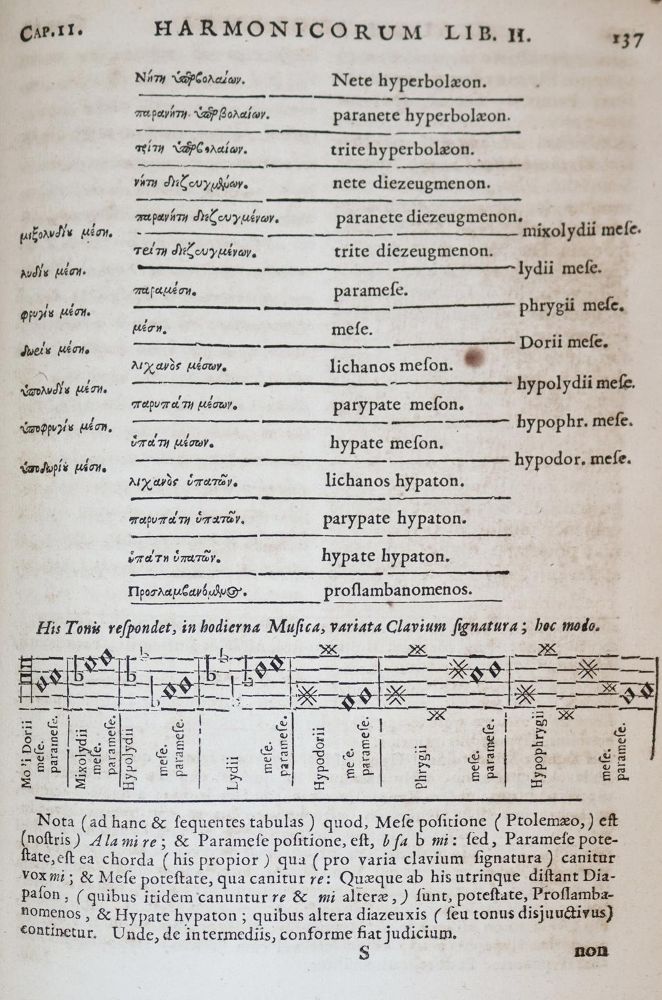 CAP. II. HARMONICORUM LIB. II. 137
Νήτη ὑπερβολαίων. Nete hyperbolæon.
παρανήτη ὑπερβολαίων. paranete hyperbolæon.
τρίτη ὑπερβολαίων. trite hyperbolæon.
νήτη διεζευγμένων. nete diezeugmenon.
παρανήτη διεζευγμένων. paranete diezeugmenon.
μιξολυδίου μέση. mixolydii meſe.
τρίτη διεζευγμένων. trite diezeugmenon.
λυδίου μέση. lydii meſe.
παραμέση. parameſe.
φρυγίου μέση. phrygii meſe.
μέση. meſe.
δωρίου μέση. Dorii meſe.
λιχανὸς μέσων. lichanos meſon.
ὑπολυδίου μέση. hypolydii meſe.
παρυπάτη μέσων. parypate meſon.
ὑποφρυγίου μέση. hypophr. meſe.
ὑπάτη μέσων. hypate meſon.
ὑποδωρίου μέση. hypodor. meſe.
λιχανὸς ὑπατῶν. lichanos hypaton.
παρυπάτη ὑπατῶν. parypate hypaton.
ὑπάτη ὑπατῶν. hypate hypaton.
Προσλαμβανόμενος. proſlambanomenos.
His Tonis reſpondet, in hodierna Muſica, variata Clavium ſignatura; hoc modo.
Mo'i Dorii
meſe.
parameſe.
Mixolydii
meſe.
parameſe.
Hypolydii
meſe.
parameſe.
Lydii
meſe.
parameſe.
Hypodorii
meſe.
parameſe.
Phrygii
meſe.
parameſe.
Hypophrygii
meſe.
parameſe.
Nota (ad hanc & ſequentes tabulas) quod, Meſe poſitione (Ptolemæo,) eſt
(noſtris) A la mi re; & Parameſe poſitione, eſt, b fa b mi: ſed, Parameſe pote-
ſtate, eſt ea chorda (his propior) qua (pro varia clavium ſignatura) canitur
vox mi; & Meſe poteſtate, qua canitur re: Quæque ab his utrinque diſtant Dia-
paſon, (quibus itidem canuntur re & mi alteræ,) ſunt, poteſtate, Proſlamba-
nomenos, & Hypate hypaton; quibus altera diazeuxis (ſeu tonus disjunctivus)
continetur. Unde, de intermediis, conforme fiat judicium.
S non